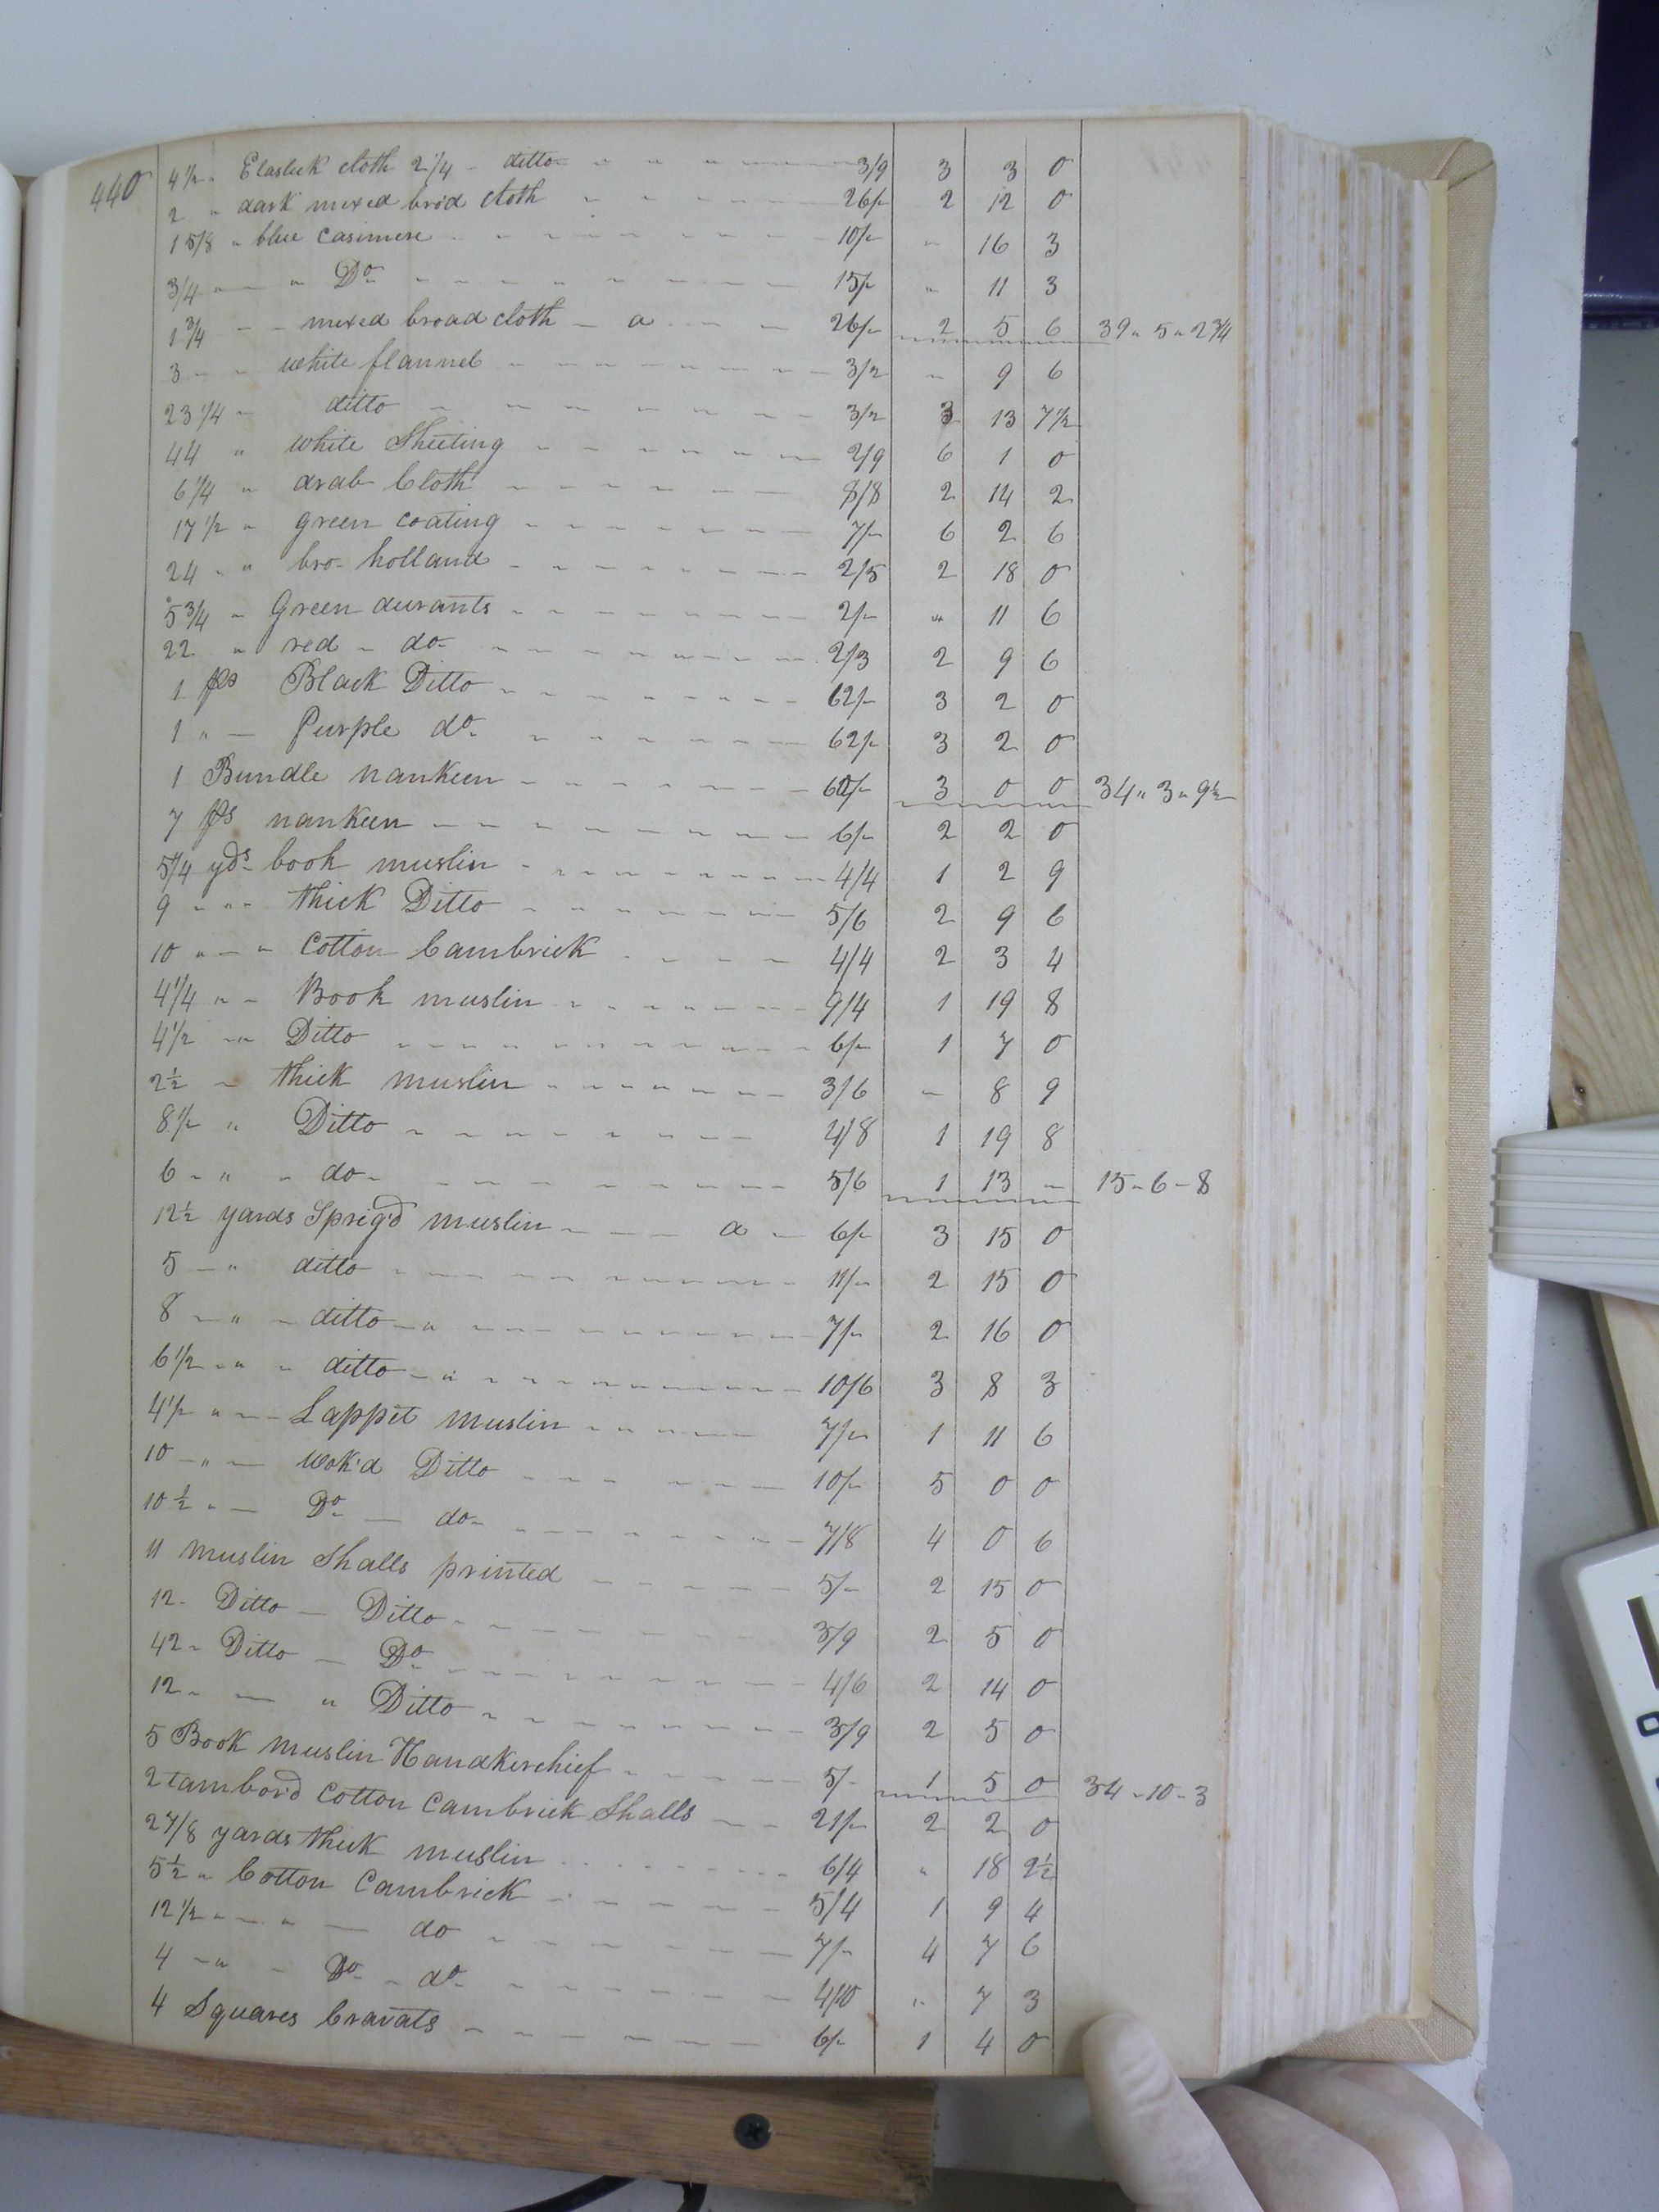 440
4½ " Elastick cloth 2 1/4 - ditto 3/9 3 3 0
2 " dark mixed bro'd cloth 26/- 2 12 0
1 5/8 " blue Casimere 10/- " 16 3
3/4 " " Do 15/- " 11 3
1 3/4 - - mixed broad cloth - a 26/- 2 5 6 39 " 5 " 2 3/4
3 - - white flannel 3/2 " 9 6
23 1/4 " ditto 3/2 3 13 7½
44 " white Sheeting 2/9 6 1 0
6 1/4 " drab Cloth 8/8 2 14 2
17 1/2 " green coating 7/- 6 2 6
24 - " bro- holland 2/5 2 18 0
5 3/4 " Green durants 2/- " 11 6
22 " red - do- 2/3 2 9 6
1 ps Black Ditto 62/- 3 2 0
1 " - Purple do 62/- 3 2 0
1 Bundle nankeen 60/- 3 0 0 34 " 3 " 9½
7 ps nankeen 6/- 2 2 0
5 1/4 yds book muslin 4/4 1 2 9
9 - " " thick Ditto 5/6 2 9 6
10 " - " Cotton Cambrick 4/4 2 3 4
4 1/4 " - Book muslin 9/4 1 19 8
4 1/2 - " Ditto 6/- 1 7 0
2 1/2 - thick muslin 3/6 - 8 9
8 1/2 " Ditto 4/8 1 19 8
6 - " - do- 5/6 1 13 - 15 - 6 - 8
12½ yards Sprig'd muslin - a - 6/- 3 15 0
5 - " ditto 11/- 2 15 0
8 - " - ditto 7/- 2 16 0
6 1/2 - " - ditto 10/6 3 8 3
4 1/2 " - - Lappit muslin 7/- 1 11 6
10 - " - wok'd Ditto 10/- 5 0 0
10½ " - Do - do- 7/8 4 0 6
11 muslin Shalls printed 5/- 2 15 0
12 - Ditto - Ditto 3/9 2 5 0
42 - Ditto - Do 4/6 2 14 0
12 - - " Ditto 3/9 2 5 0
5 Book muslin Handkerchief 5/- 1 5 0 34 - 10 - 3
2 tambor'd Cotton Cambrick Shalls 21/- 2 2 0
2 7/8 yards thick muslin 6/4 " 18 2½
5½ " Cotton Cambrick 5/4 1 9 4
12 1/2 " - " - do 7/- 4 7 6
4 - " - Do - do 4/10 " 7 3
4 Squares Cravats 6/- 1 4 0